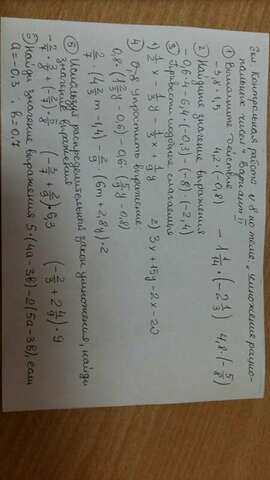 Зачи Контрольная работа №8 по теме „Умножение рацио-
нальных чисел" Вариант II
① Выполнить действие
-3,8·1,5    4,2·(-0,8)    -1 1/14·(-2 1/3)    4,8·(-5/8)
2) Найдите значение выражения
-0,6·4 - 6,4·(-0,3) - (-8)·(-2,4)
③ Привести подобные слагаемые
1) 1/2 x - 1/3 y - 1/3 x + 1/9 y    2) 3x + 15y - 2x - 20
④ Упростить выражение
0,8·(1 2/5 y - 0,6) - 0,6·(2/3 y - 0,8)
2/7·(4 2/3 m - 1,4) - 2/9·(6m + 2,8y)·2
⑤ Используя распределительный закон умножения, найди
значение выражения
-5/7·3/8 + (-2/7)·3/8    (-2/7 + 2/9)·6,3    (-2/3 + 2 4/9)·9
⑤ Найди значение выражения 5·(4a-3в)-2(5a-3в), если
a = -0,3 , в = 0,7